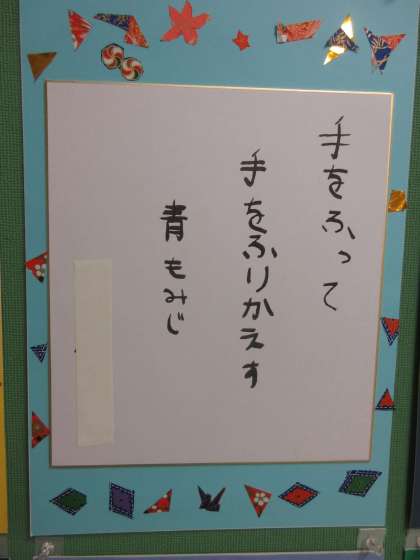 手をふって
手をふりかえす
青もみじ